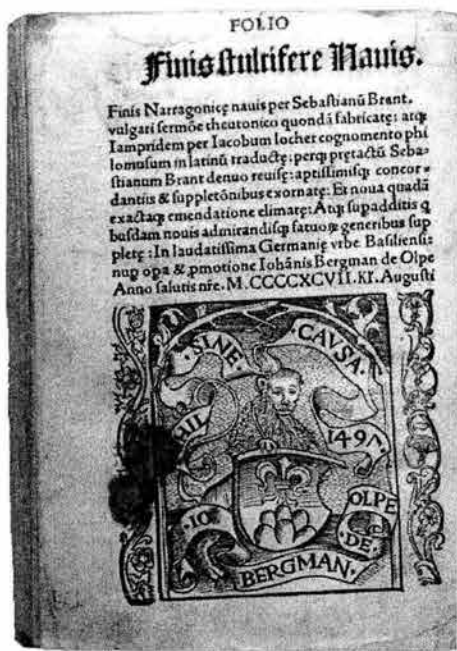 FOLIO
Finis stultifere Nauis.
Finis Narragonicę nauis per Sebastianū Brant.
vulgari sermōe theutonico quondā fabricatę: atqꝫ
Iampridem per Iacobum locher cognomento phi
lomusum in latinū traductę: perqꝫ prętactū Seba⸗
stianum Brant denuo reuisę: aptissimisqꝫ concor⸗
dantiis & suppletōnibus exornatę: Et noua quadā
exactaqꝫ emendatione elimatę: Atqꝫ supadditis q
busdam nouis admirandisqꝫ fatuoꝝ generibus sup
pletę: In laudatissima Germanię vrbe Basiliensi:
nup opa & pmotione Iohānis Bergman de Olpe
Anno salutis nr̄e. M.CCCCXCVII.KI. Augusti
·SINE·
CAVSA·
NIL
1497.
·IO·
OLPE
·DE·
BERGMAN·